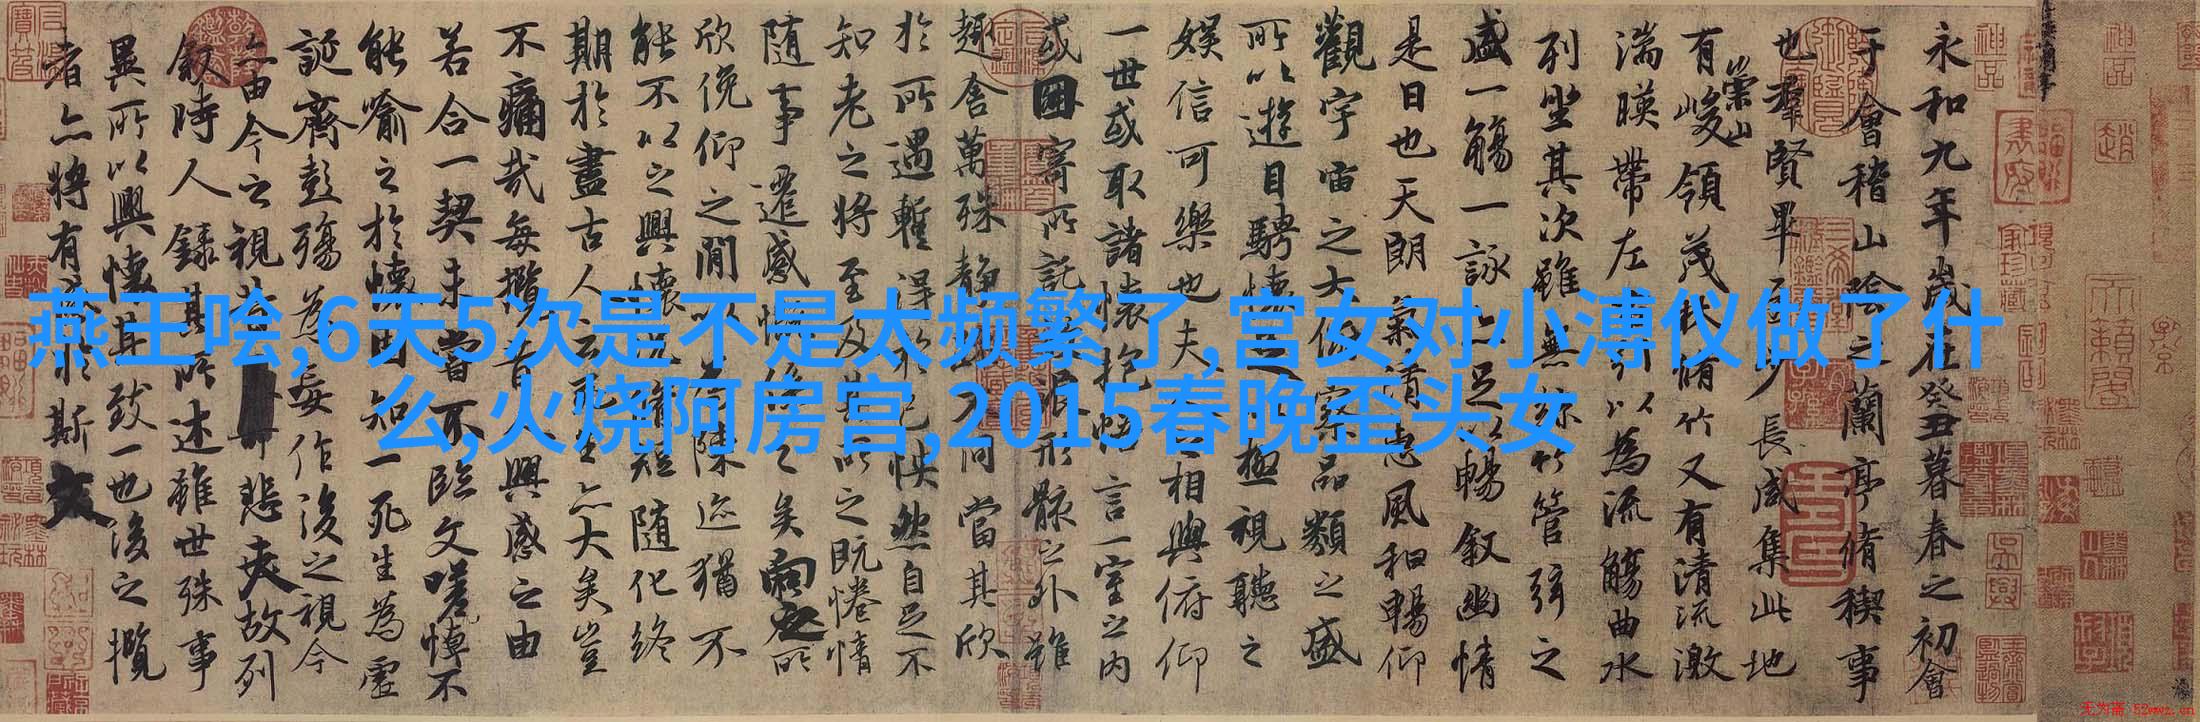 燕王哙,6天5次是不是太频繁了,宫女对小溥仪做了什
么,火烧阿房宫,2015春晚歪头女
永和九年歲在癸丑暮春之初會
于會稽山陰之蘭亭脩稧事
也群賢畢至少長咸集此地
有崇山峻領茂林脩竹又有清流激
湍暎帶左右引以為流觴曲水
列坐其次雖無絲竹管弦之
盛一觴一詠亦足以暢叙幽情
是日也天朗氣清惠風和暢仰
觀宇宙之大俯察品類之盛
所以遊目騁懷足以極視聽之
娛信可樂也夫人之相與俯仰
一世或取諸懷抱悟言一室之內
或因寄所託放浪形骸之外雖
趣舍萬殊静躁不同當其欣
於所遇暫得於己怏然自足不
知老之將至及其所之既惓情
隨事遷感慨係之矣向之所
欣俛仰之閒以為陳迹猶不
能不以之興懷況脩短隨化終
期於盡古人云死生亦大矣豈
不痛哉每攬昔人興感之由
若合一契未嘗不臨文嗟悼不
能喻之於懷固知一死生為虛
誕齊彭殤為妄作後之視今
亦由今之視昔悲夫故列
叙時人錄其所述雖世殊事
異所以興懷其致一也後之攬
者亦將有感於斯文